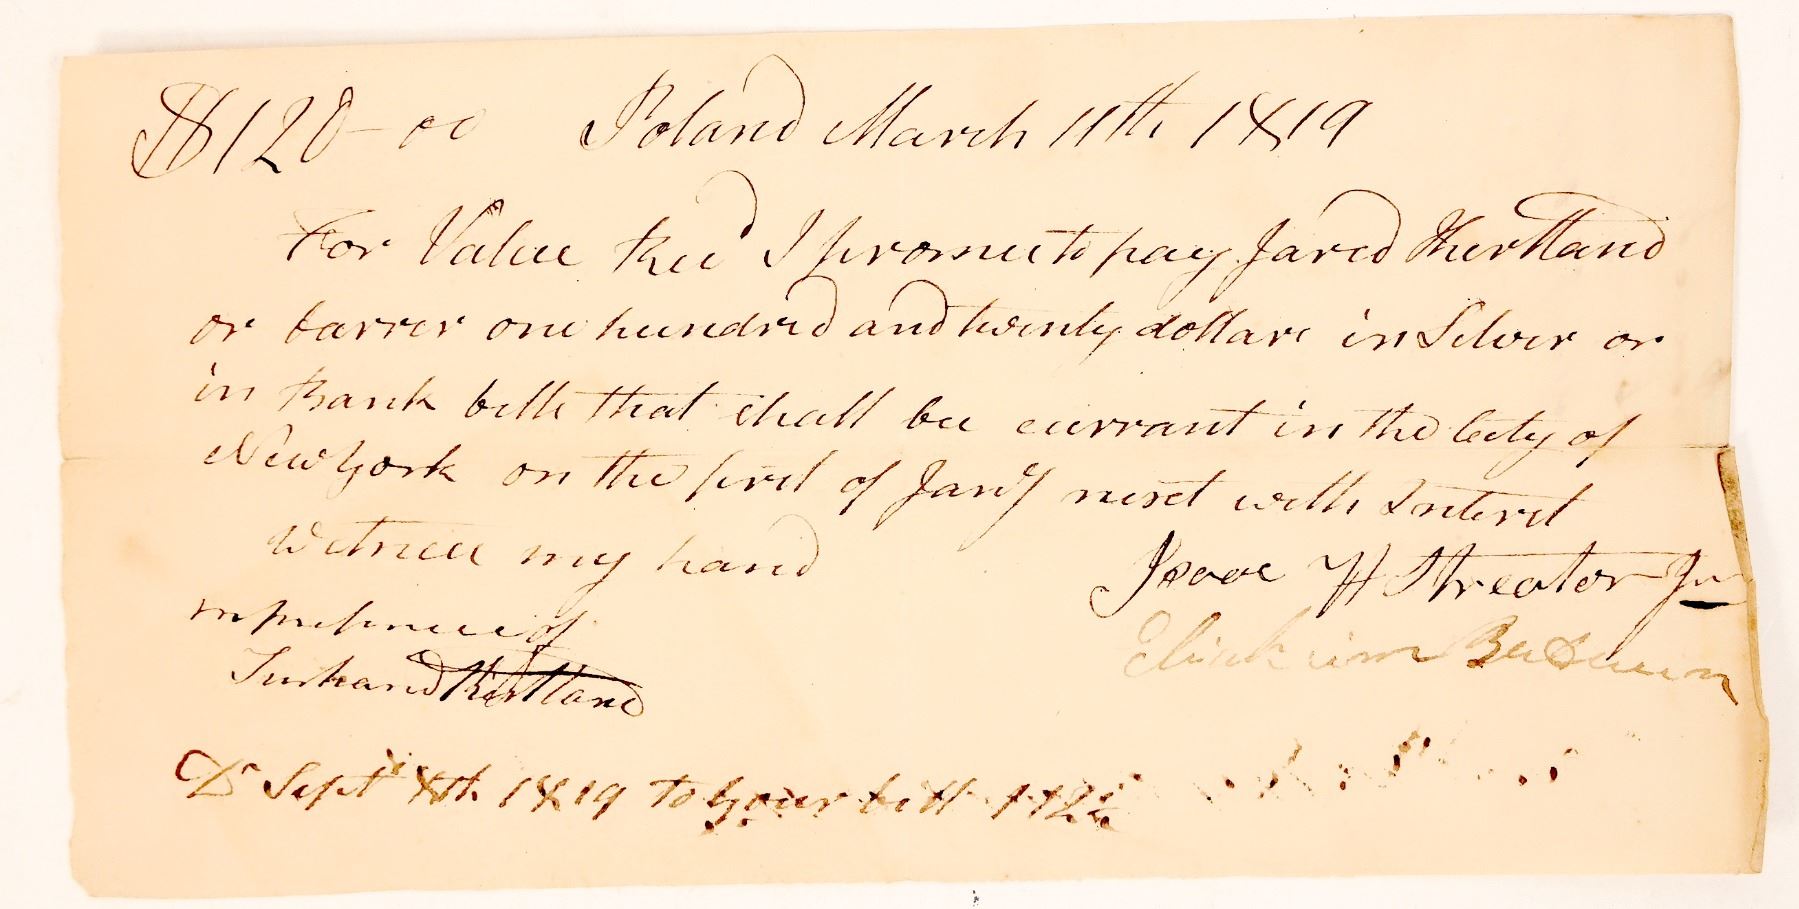 $120-00 Poland March 11th 1819
For Value Recd I promise to pay Jared Kirtland
or barrer one hundred and twenty dollars in Silver or
in Bank bills that shall be currant in the City of
New York on the first of Jany next with Interest
Witness my hand
Isaac H Streator Jur
in presence of
Eliakim Baldwin
Turhand Kirtland
Dr Sept 8th 1819 to your bill